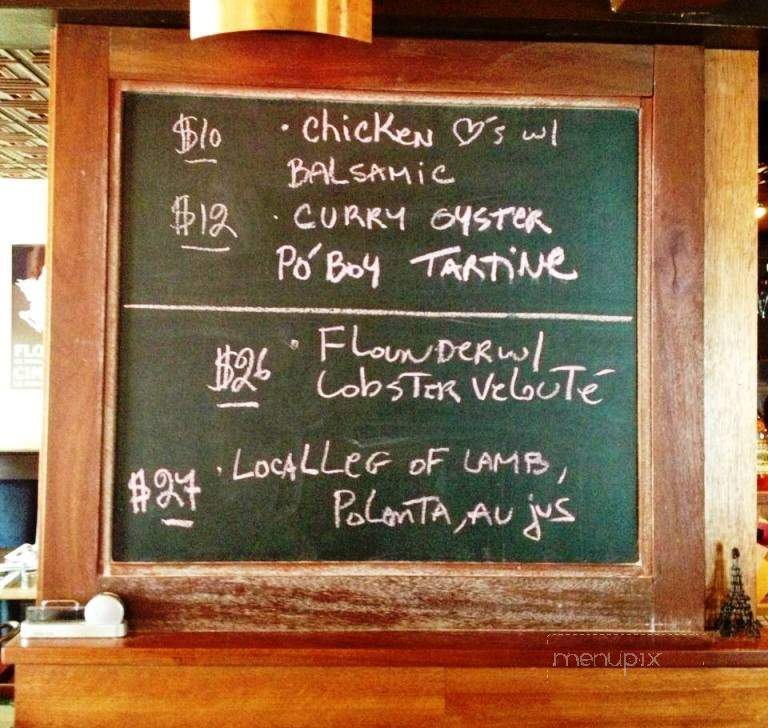 $10 · Chicken ♡'s w/
BALSAMIC
$12 · CURRY OYSTER
PO'BOY TARTINE
$26 · FLOUNDER w/
LOBSTER VELOUTÉ
$27 · LOCAL LEG OF LAMB,
POLANTA, AU jus
FLO
CIN
menupix